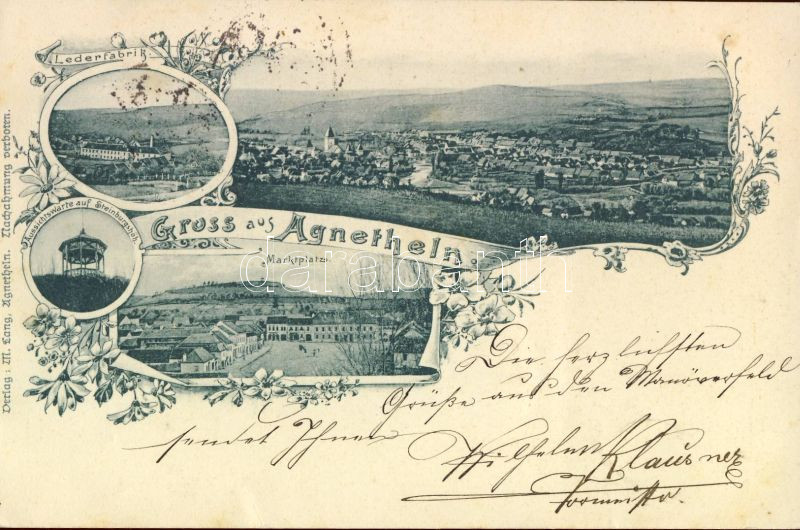 Lederfabrik.
Aussichtswarte auf Steinburghöh.
Gruss aus Agnetheln.
Marktplatz.
darabanth
Verlag: M. Lang, Agnetheln. Nachahmung verboten.
Die herzlichsten
Grüße aus dem Manöverfeld
sendet Ihnen
Wilhelm Klausner